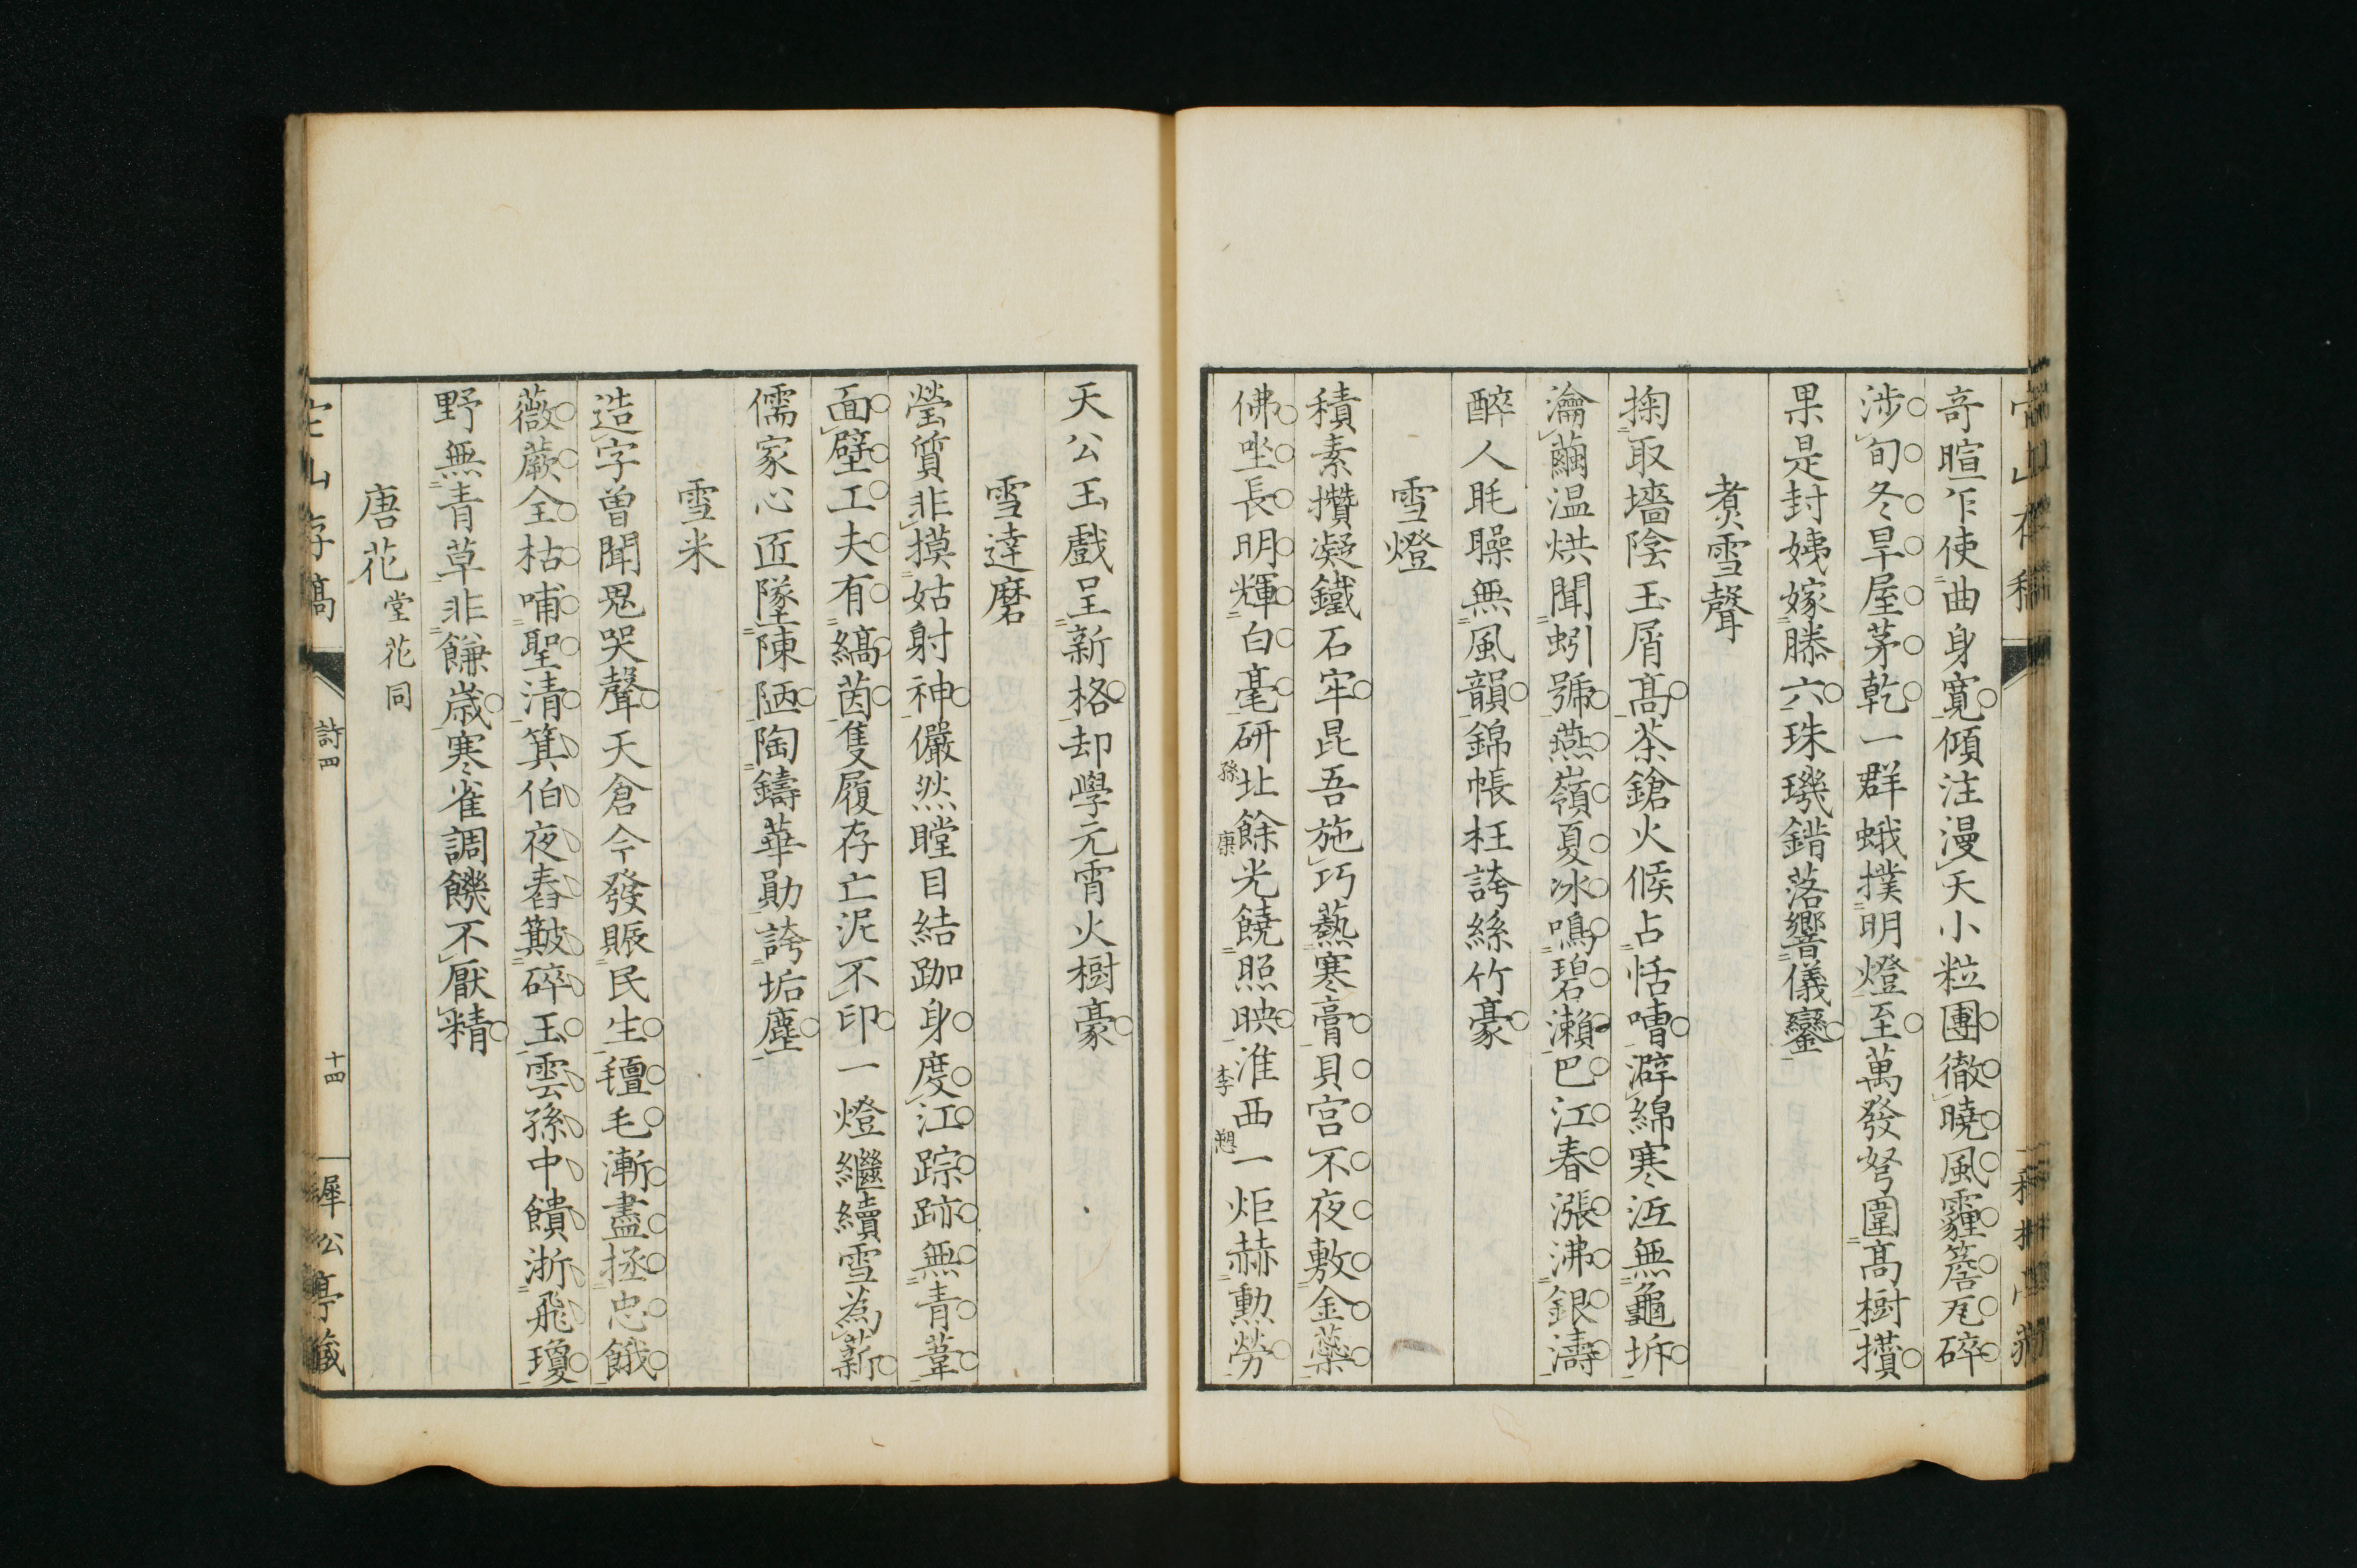 奇暄乍使曲身寛傾注漫天小粒團徹曉風霾簷瓦碎
涉旬冬旱屋茅乾一群蛾撲明燈至萬發弩圍髙樹攢
果是封姨嫁滕六珠璣錯落響儀鑾
煮雪聲
掬取墻陰玉屑髙茶鎗火候占恬嘈澼綿寒沍無龜坼
瀹繭温烘聞蚓號燕嶺夏冰鳴碧瀨巴江春漲沸銀濤
醉人眊矂無風韻錦帳枉誇絲竹豪
雪燈
積素攢凝鐵石牢昆吾施巧爇寒膏貝宫不夜敷金蘂
佛坐長明輝白毫研北餘光饒照映淮西一炬赫勲勞
孫
康
李
愬
天公玉戲呈新格却學元宵火樹豪
雪達磨
瑩質非摸姑射神儼然瞠目結跏身度江踪跡無青葦
面壁工夫有縞茵隻履存亡泥不印一燈繼續雪為薪
儒家心匠墜陳陋陶鑄華勛誇垢塵
雪米
造字曽聞鬼哭聲天倉今發賑民生氊毛漸盡拯忠餓
薇蕨全枯哺聖清箕伯夜舂簸碎玉雲孫中饋淅飛瓊
野無青草非饑歲寒雀調饑不厭精
唐花 堂花同
詩四
十四
犀公亭藏